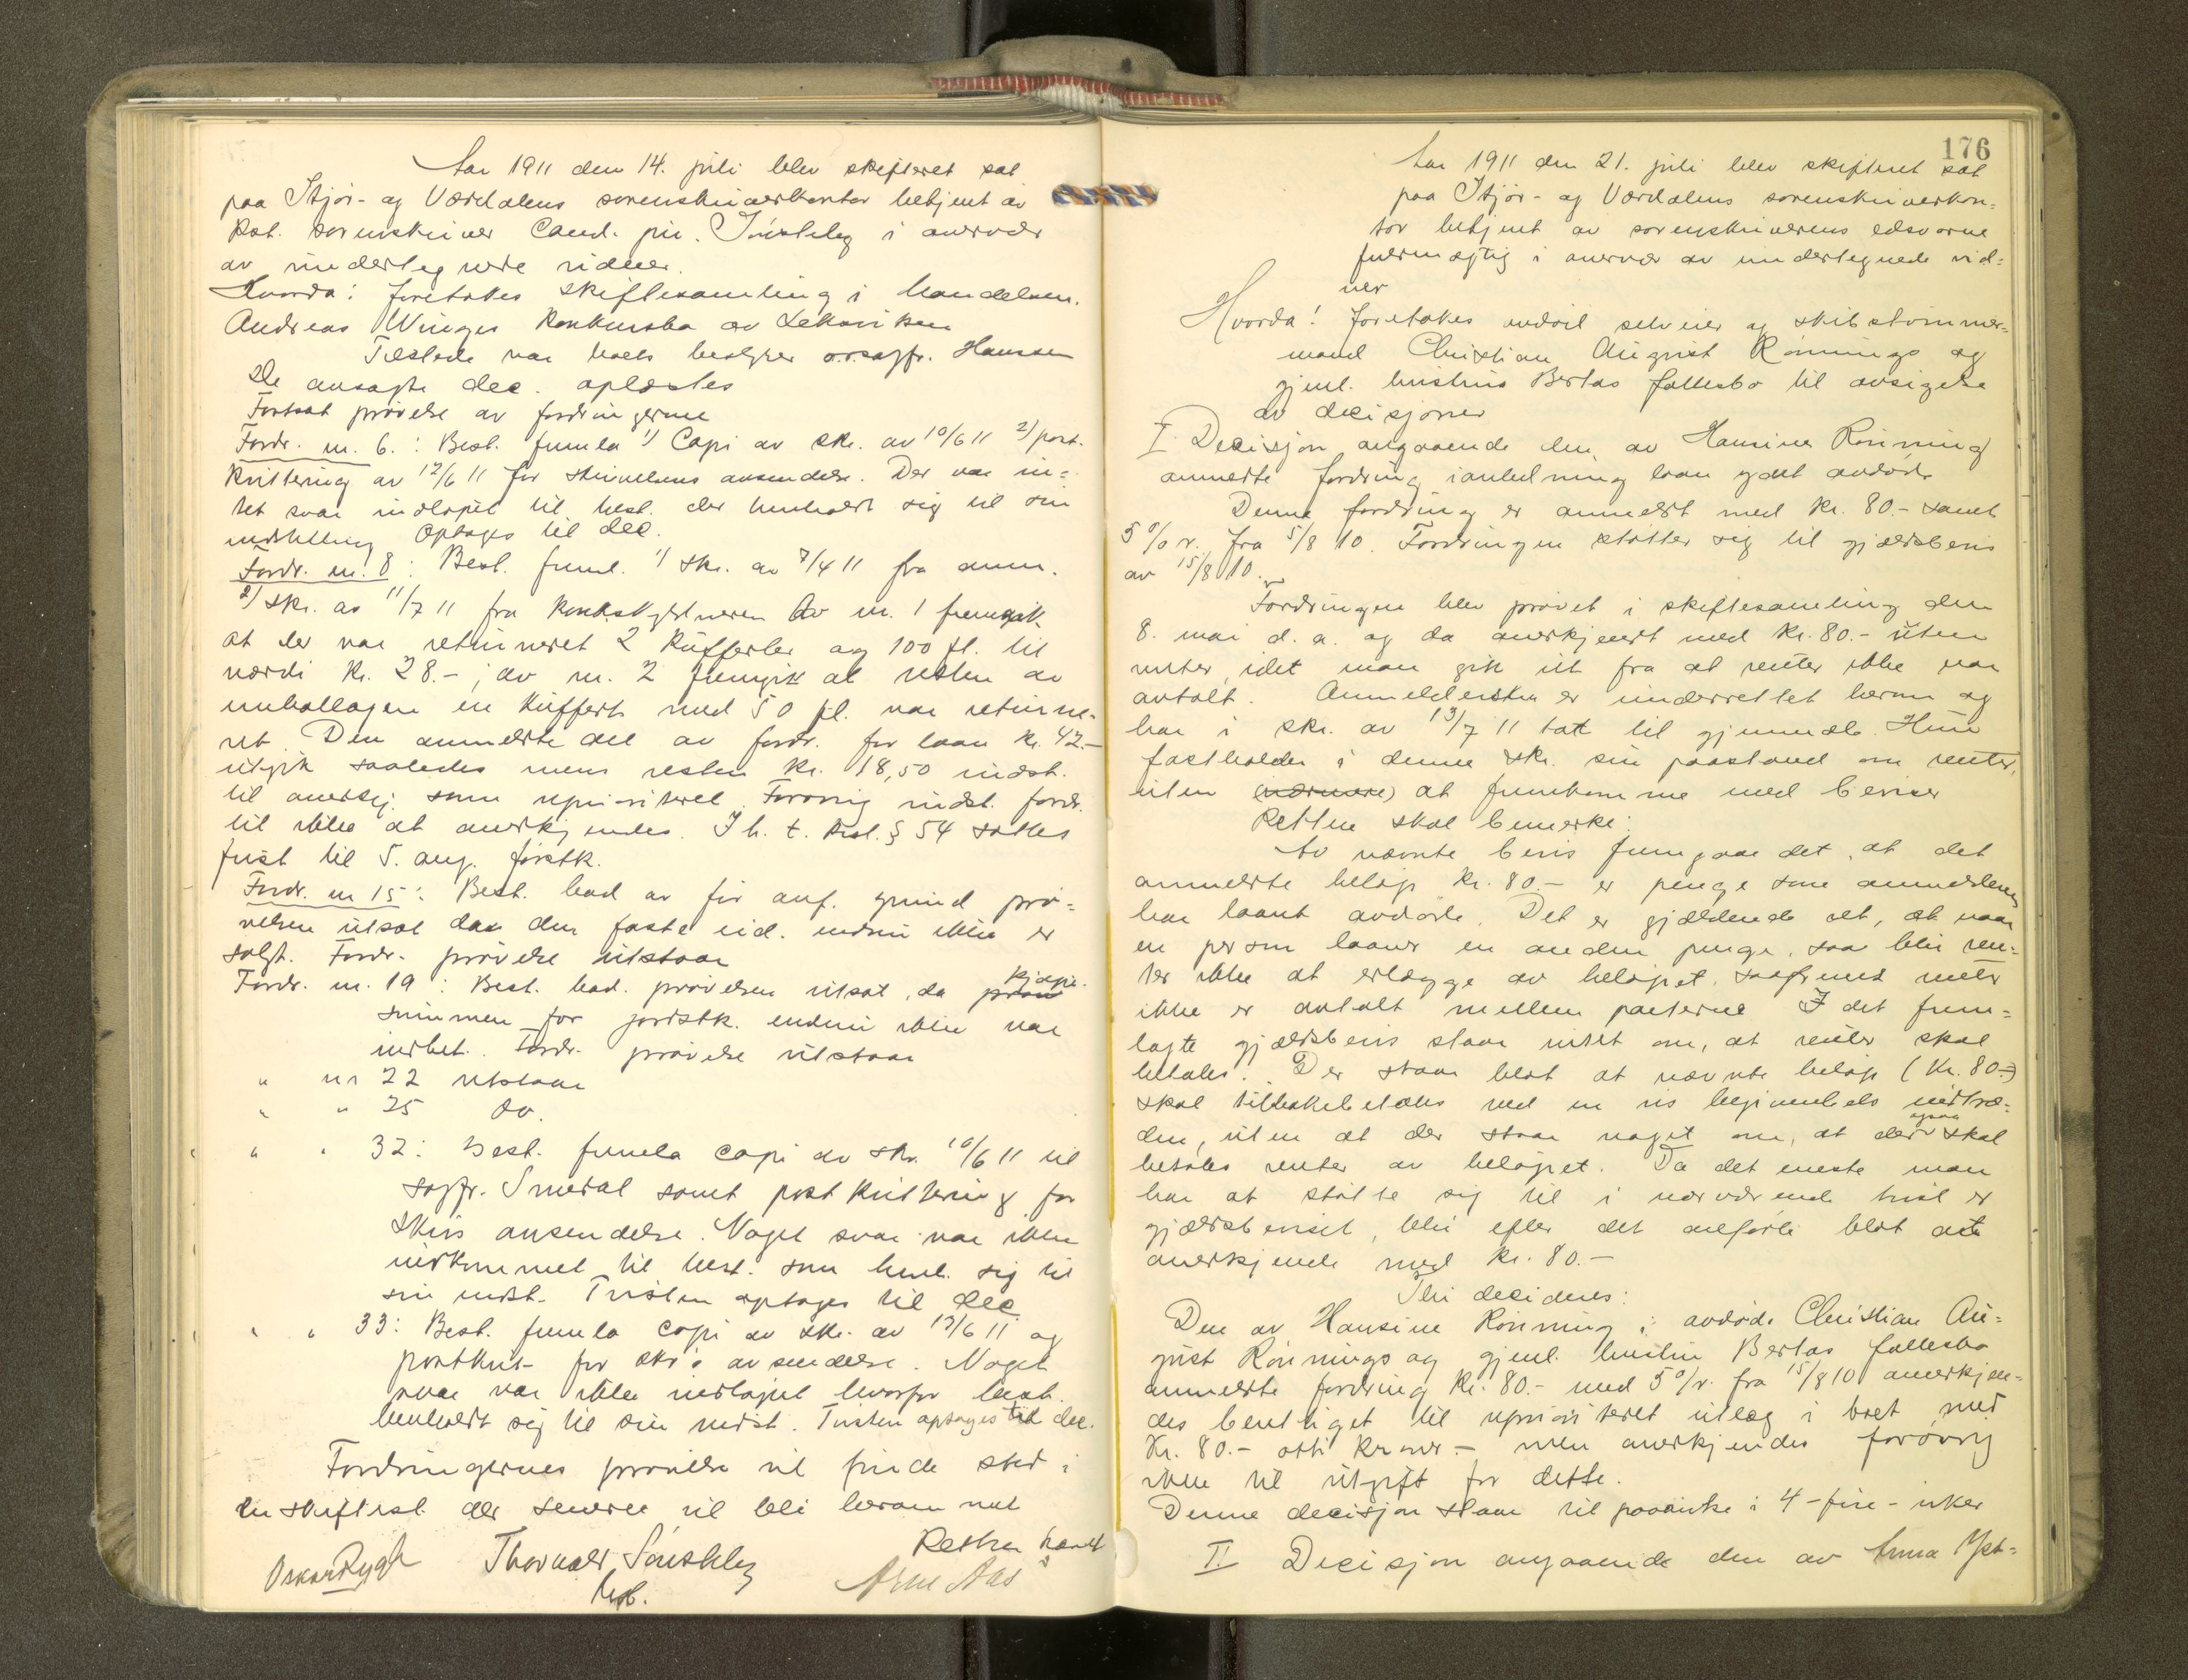 Aar 1911 den 14. juli blev skifteret sat
paa Stjør- og Værdalens sorenskriverkontor betjent av
kst. sorenskriver Cand. jur. i overvær
av undertegnede vidner.
Hvorda: foretokes skiftesamling i handelsm.
Andreas Winges konkursbo av Leksviken
Tilstede var boets bestyrer o.r.sagfr. Hansen
De avsagte dec. oplæstes
Fortsat prøvelse av fordringerne
Fordr. nr. 6.: Best. fremla 1) Copi av skr. av 10/6 11 2) post-
kvittering av 12/6 11 for skrivelsens avsendelse. Der var in-
tet svar indløpet til best. der henholdt sig til sin
indstilling Optages til dec.
Fordr. nr. 8: Best. freml. 1) skr. av 7/4 11 fra anm.
2) Skr. av 11/7 11 fra konkursskyldneren Av nr. 1 fremgik
at der var returneret 2 kufferter og 100 fl. til
værdi kr. 28.-; av nr. 2 fremgik at resten av
emballagen en kuffert med 50 fl. var returne-
ret. Den anmeldte del av fordr. for laan kr. 42.-
utgik saaledes mens resten kr. 18,50 indst.
til anerkj. som uprioriteret. Forøvrig indst. fordr.
til ikke at anerkjendes. I h. t. ksl. § 54 sættes
frist til 5. aug. førstk.
Fordr. nr 15: Best. bad av før anf. grund prø-
velsen utsat da den faste eid. endnu ikke er
solgt. Fordr. prøvelse utstaar
Fordr. nr. 19: Best. bad. prøvelsen utsat, da kjøpe-
summen for jordstk. endnu ikke var
indbet. Fordr. prøvelse utstaar
" nr 22 utstaar
" " 25 do.
" " 32: Best. fremla copi av skr. 10/6 11 til
sagfr. Smedal samt postkvittering for
skrs avsendelse. Noget svar var ikke
indkommet til best. som henh. sig til
sin indst. Tvisten optages til dec.
" " 33: Best. fremla copi av skr. av 13/6 11 og
postkvit- for skr's avsendelse. Noget
svar var ikke indløpet hvorfor best.
henholdt sig til sin indst. Tvisten optages til dec.
Fordringernes prøvelse vil finde sted i
en skiftesl. der senere vil bli berammet
Retten hævet
Oskar Rygh Thorvald
Arne Aas
176
Aar 1911 den 21. juli blev skifteret sat
paa Stjør- og Værdalens sorenskriverkon-
tor betjent av sorenskriverens edsvorne
fuldmægtig i overvær av undertegnede vid-
ner
Hvorda! foretokes avdød selveier og skibstømmer-
mand Christian August Rønnings og
gjenl. hustrus Bertas fællesbo til avsigelse
av decisjoner
I Decisjon angaaende den av Hansine Rønning
anmeldte fordring i anledning laan ydet avdøde
Denne fordring er anmeldt med kr. 80.- samt
5 % r. fra 5/8 10. Fordringen støtter sig til gjældsbevis
av 15/8 10.
Fordringen blev prøvet i skiftesamling den
8. mai d. a. og da anerkjendt med kr. 80.- uten
renter, idet man gik ut fra at renter ikke var
avtalt. Anmeldersken er underrettet herom og
har i skr. av 13/7 11 tat til gjenmæle. Hun
fastholder i denne skr. sin paastand om renter,
uten (nærmere) at fremkomme med beviser
Retten skal bemerke:
Av nævnte bevis fremgaar det, at det
anmeldte beløp kr. 80.- er penge som anmelderen
har laant avdøde. Det er gjældende ret, at naar
en person laaner en anden penge, saa blir ren-
ter ikke at erlægge av beløpet, saafremt renter
ikke er avtalt mellem parterne I det frem-
lagte gjældsbevis staar intet om, at renter skal
betales. Der staar blot at nævnte beløp (kr. 80.-)
skal tilbakebetales ved en vis begivenhets indtræ-
den, uten at der staar noget om, at der ogsaa skal
betales renter av beløpet. Da det eneste man
har at støtte sig til i nærværende tvist er
gjældsbeviset, blir efter det anførte blot at
anerkjende med kr. 80.-
Thi decideres:
Den av Hansine Rønning i avdøde Christian Au-
gust Rønnings og gjenl. hustru Bertas fællesbo
anmeldte fordring kr. 80.- med 5 % r. fra 15/8 10 anerkjen-
des berettiget til uprioritert utlæg i boet med
Kr. 80.- otti kroner - men anerkjendes forøvrig
ikke til utgift for dette.
Denne decisjon staar til paaanke i 4 - fire - uker
II Decisjon angaaende den av Anna